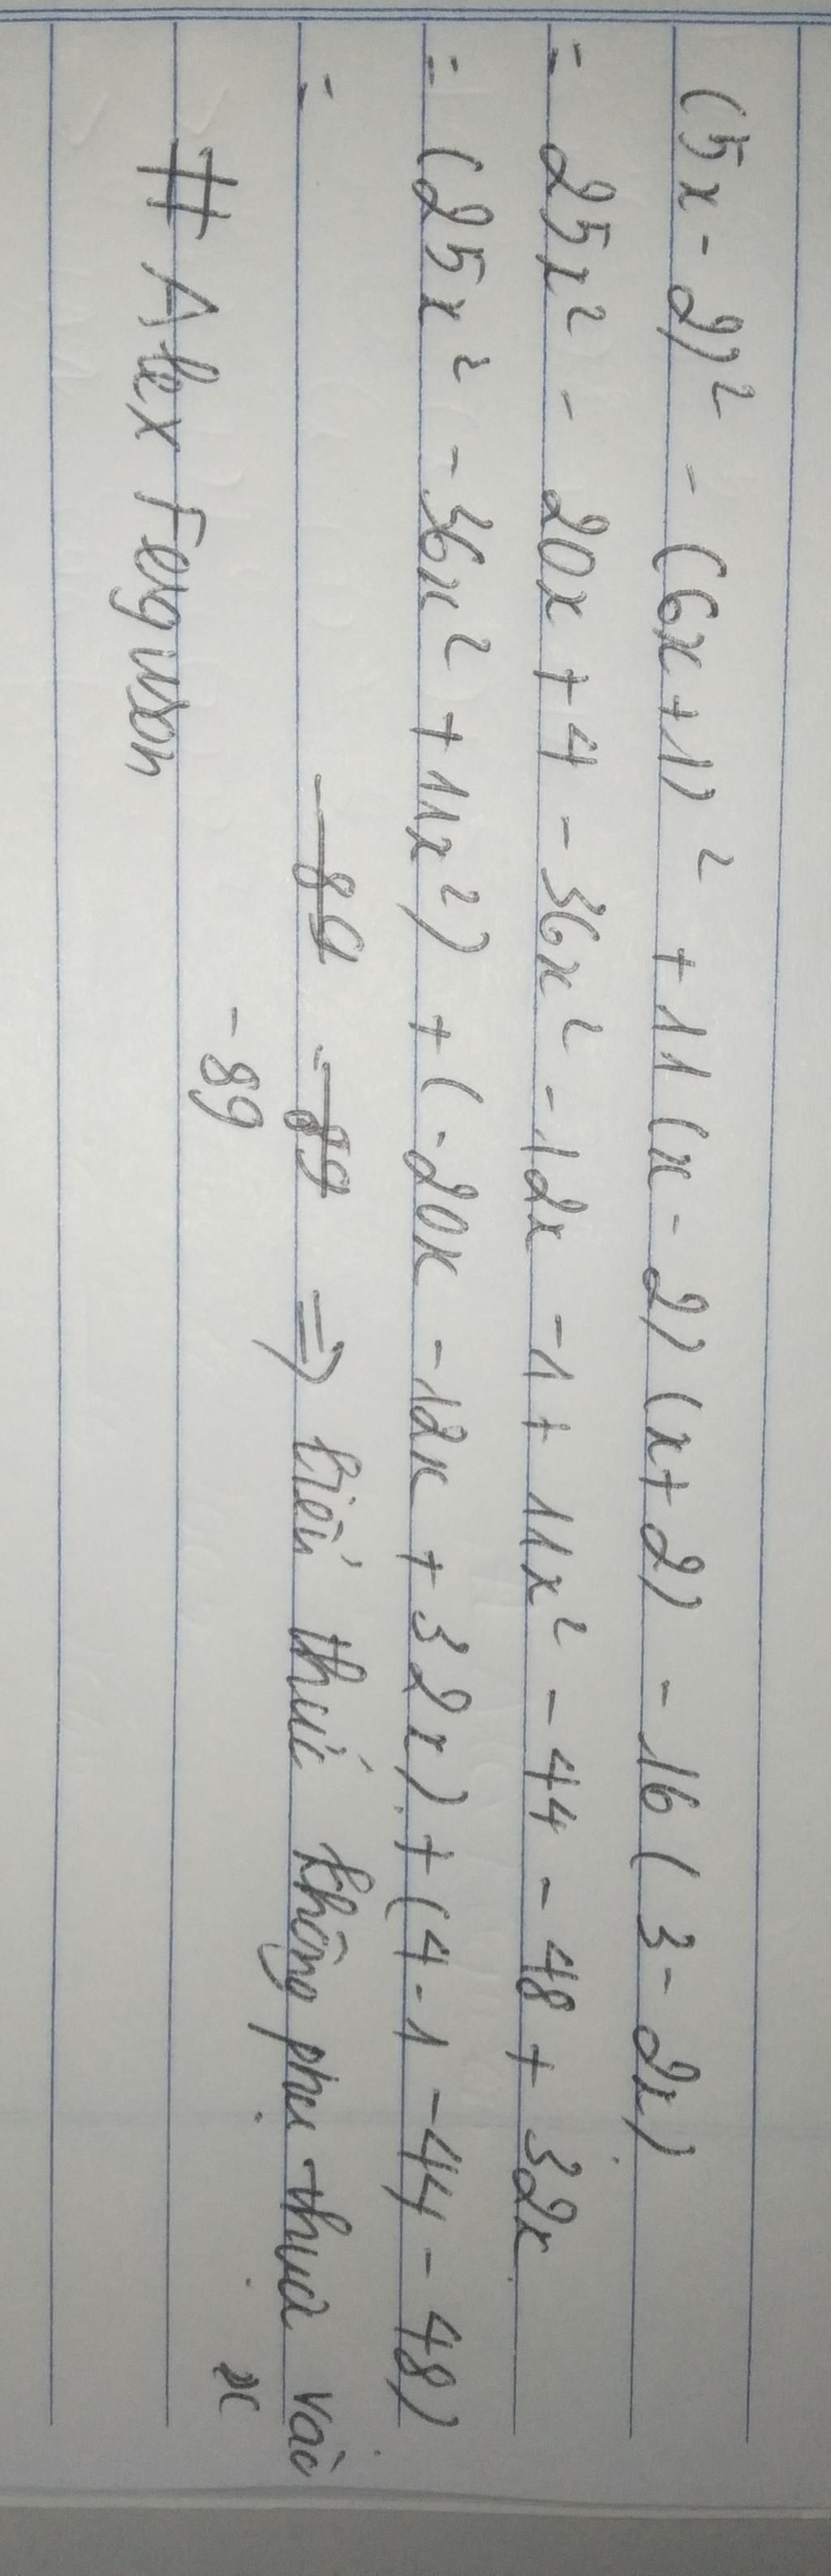 (5x - 2)² - (6x + 1)² + 11 (x - 2) (x + 2) - 16 (3 - 2x)
= 25x² - 20x + 4 - 36x² - 12x - 1 + 11x² - 44 - 48 + 32x
= (25x² - 36x² + 11x²) + (-20x - 12x + 32x) + (4 - 1 - 44 - 48)
= -89 -89 => biểu thức không phụ thuộc vào
-89 x
# Alex Ferguson